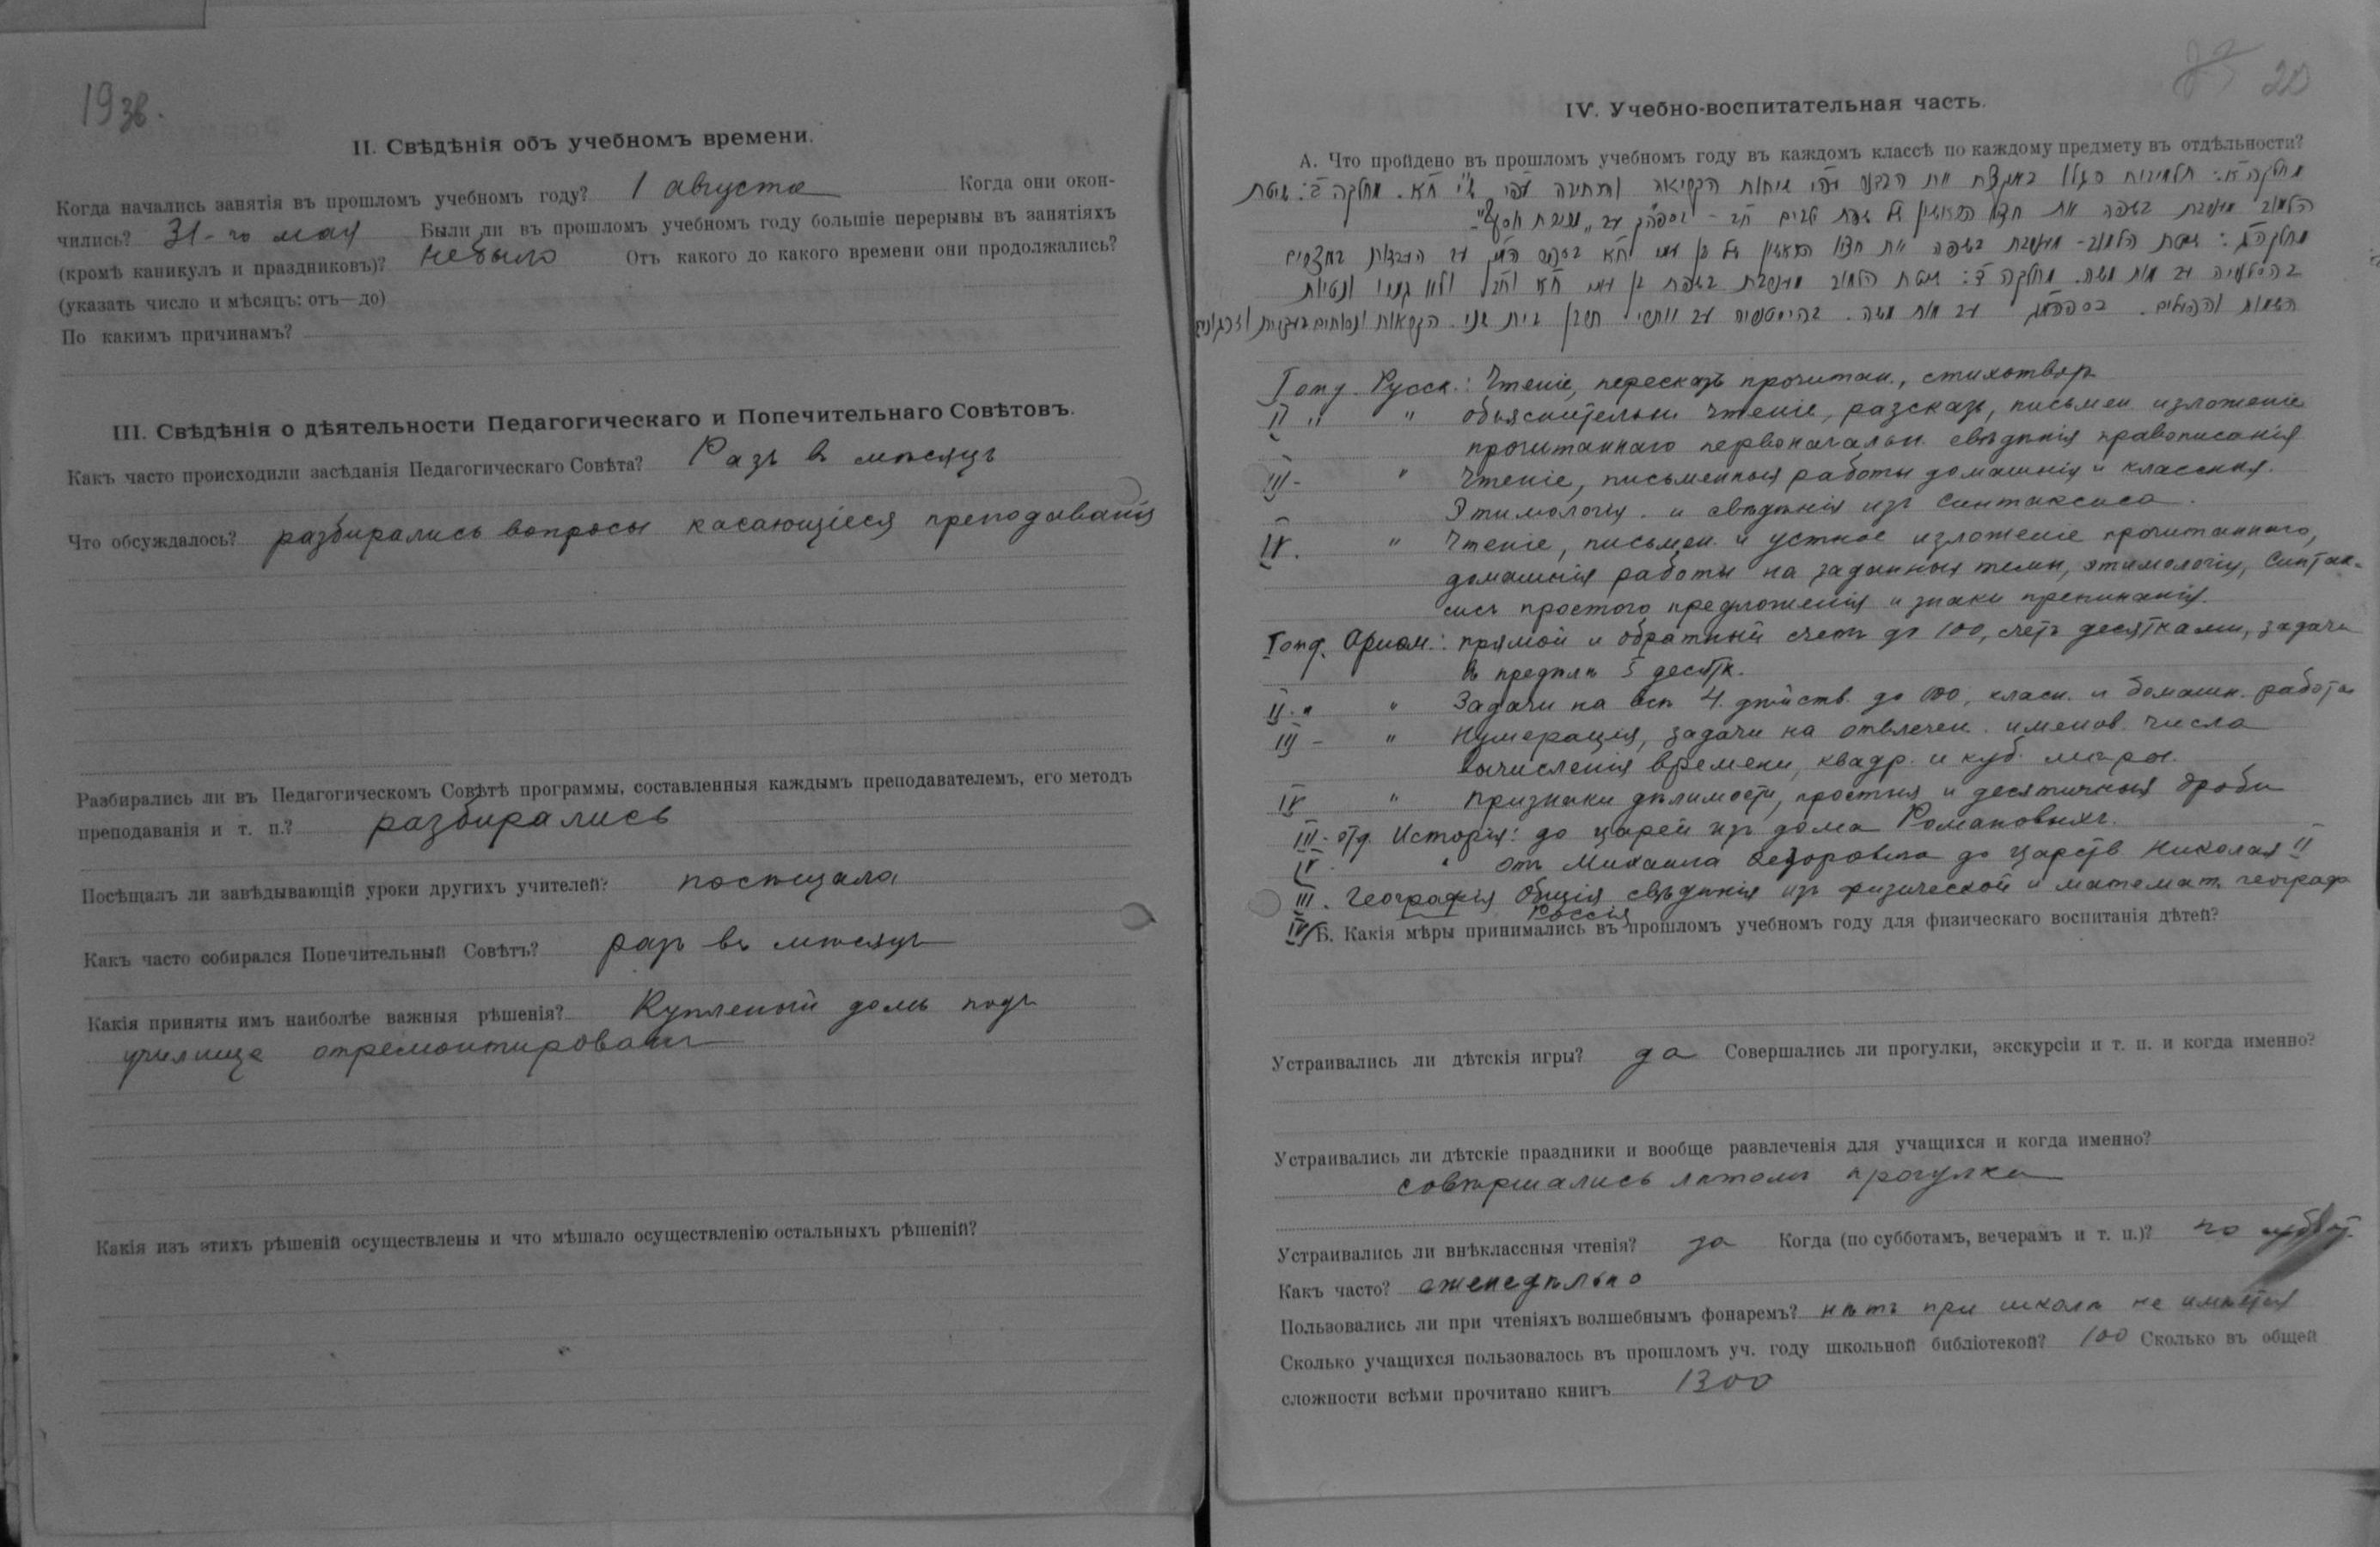 19зв.
II. Свѣдѣнія объ учебномъ времени.
Когда начались занятія въ прошломъ учебномъ году? 1 августа Когда они окон-
чились? 31-го мая Были ли въ прошломъ учебномъ году большіе перерывы въ занятіяхъ
(кромѣ каникулъ и праздниковъ)? небыло Отъ какого до какого времени они продолжались?
(указать число и мѣсяцъ: отъ—до)
По какимъ причинамъ?
III. Свѣдѣнія о дѣятельности Педагогическаго и Попечительнаго Совѣтовъ.
Какъ часто происходили засѣданія Педагогическаго Совѣта? Разъ в мѣсяцъ
Что обсуждалось? разбирались вопросы касающіеся преподаванія
Разбирались ли въ Педагогическомъ Совѣтѣ программы, составленныя каждымъ преподавателемъ, его методъ
преподаванія и т. п.? разбирались
Посѣщалъ ли завѣдывающій уроки другихъ учителей? посѣщала
Какъ часто собирался Попечительный Совѣтъ? разъ въ мѣсяцъ
Какія приняты имъ наиболѣе важныя рѣшенія? Купленый домъ подъ
училище отремонтированъ
Какія изъ этихъ рѣшеній осуществлены и что мѣшало осуществленію остальныхъ рѣшеній?
20
IV. Учебно-воспитательная часть.
А. Что пройдено въ прошломъ учебномъ году въ каждомъ классѣ по каждому предмету въ отдѣльности?
I отд. Русск.: Чтеніе, пересказъ прочитан., стихотвор.
II " " объяснительн чтеніе, разсказъ, письмен изложеніе
прочитаннаго первоначальн. свѣдѣнія правописанія
III - " Чтеніе, письменныя работы домашнія и классныя.
Этимологія. и свѣдѣнія изъ синтаксиса.
IV. " Чтеніе, письмен. и устное изложеніе прочитаннаго,
домашнія работы на заданныя темы, этимологія, синтак-
сисъ простого предложенія и знаки препинанія.
I отд. Арифм.: прямой и обратный счетъ до 100, счетъ десятками, задачи
въ предѣлѣ 5 десятк.
II. " " Задачи на всѣ 4. дѣйств. до 100, класн. и домашн. работа
III - " Нумерация, задачи на отвлечен. именов. числа
вычисленія времени, квадр. и куб. мѣры.
IV " Признаки дѣлимости, простыя и десятичныя дроби
III - отд. Исторія: до царей изъ дома Романовыхъ.
IV. " отъ Михаила Федоровича до царств Николая II
III. Географія Общія свѣдѣнія изъ физической и математ. географ
IV Россія
Б. Какія мѣры принимались въ прошломъ учебномъ году для физическаго воспитанія дѣтей?
Устраивались ли дѣтскія игры? да Совершались ли прогулки, экскурсіи и т. п. и когда именно?
Устраивались ли дѣтскіе праздники и вообще развлеченія для учащихся и когда именно?
совѣршались лѣтомъ прогулки
Устраивались ли внѣклассныя чтенія? да Когда (по субботамъ, вечерамъ и т. п.)? по суббот.
Какъ часто? еженедѣльно
Пользовались ли при чтеніяхъ волшебнымъ фонаремъ? нѣтъ при школѣ не имѣется
Сколько учащихся пользовалось въ прошломъ уч. году школьной библіотекой? 100 Сколько въ общей
сложности всѣми прочитано книгъ 1300